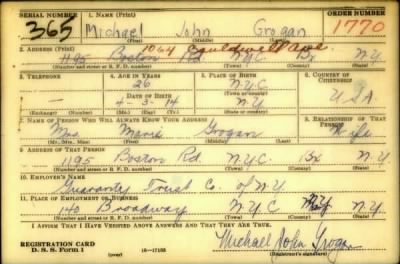 SERIAL NUMBER 1. NAME (Print) ORDER NUMBER
365 Michael John Grogan 1770
(First) (Middle) (Last)
1064 Cauldwell Ave.
2. ADDRESS (Print)
1195 Boston Rd N.Y.C. Bx N.Y.
(Number and street or R. F. D. number) (Town) (County) (State)
3. TELEPHONE 4. AGE IN YEARS 5. PLACE OF BIRTH 6. COUNTRY OF CITIZENSHIP
26 N.Y.C.
— DATE OF BIRTH (Town or county)
4-3-14 N.Y. U.S.A.
(Exchange) (Number) (Mo.) (Day) (Yr.) (State or country)
7. NAME OF PERSON WHO WILL ALWAYS KNOW YOUR ADDRESS 8. RELATIONSHIP OF THAT PERSON
Mrs Marie Grogan Wife
(Mr., Mrs., Miss) (First) (Middle) (Last)
9. ADDRESS OF THAT PERSON
1195 Boston Rd. N.Y.C. Bx N.Y.
(Number and street or R. F. D. number) (Town) (County) (State)
10. EMPLOYER'S NAME
Guaranty Trust Co. of N.Y.
11. PLACE OF EMPLOYMENT OR BUSINESS
140 Broadway N.Y.C. N.Y.
(Number and street or R. F. D. number) (Town) (County) (State)
I AFFIRM THAT I HAVE VERIFIED ABOVE ANSWERS AND THAT THEY ARE TRUE.
REGISTRATION CARD
D. S. S. Form 1 (over) 16—17105 Michael John Grogan
(Registrant's signature)